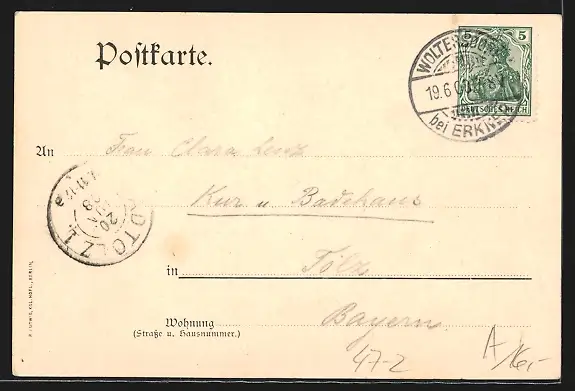 Postkarte.
5
WOLTERSDORF
19.6.0
DEUTSCHES REICH
bei ERKNER
An Frau Clara Lenz
Kur u Badehaus
TÖLZ
20
in Tölz
Wohnung
(Straße u. Hausnummer.)
Bayern
47-2